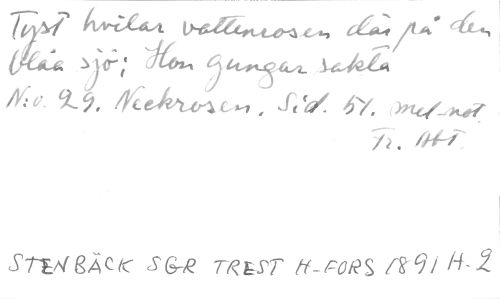 Tyst hvilar vattenrosen där på den
blåa sjö; Hon gungar sakta
N:o. 29. Neckrosen. Sid. 51. mel-not.
Fr. Abt.
STENBÄCK SGR TREST H-FORS 1891 H.2